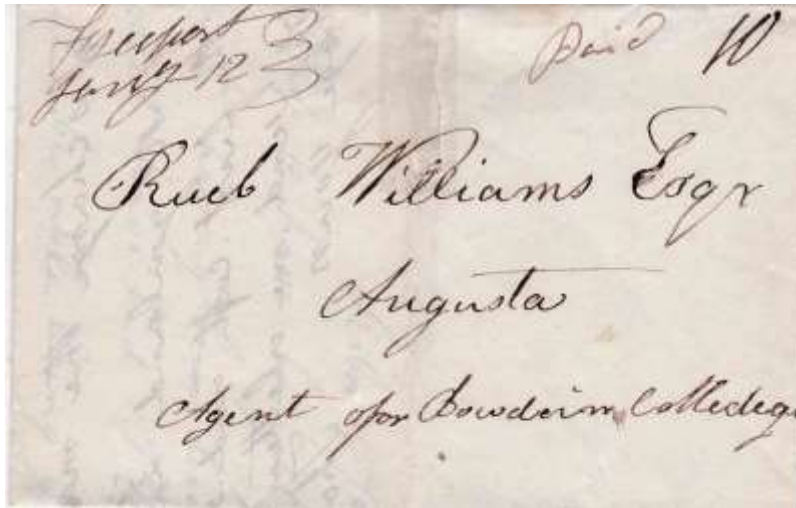 Freeport
Jany 12
Paid 10
Rueb Williams Esqr
Augusta
Agent for Bowdoin Colledge